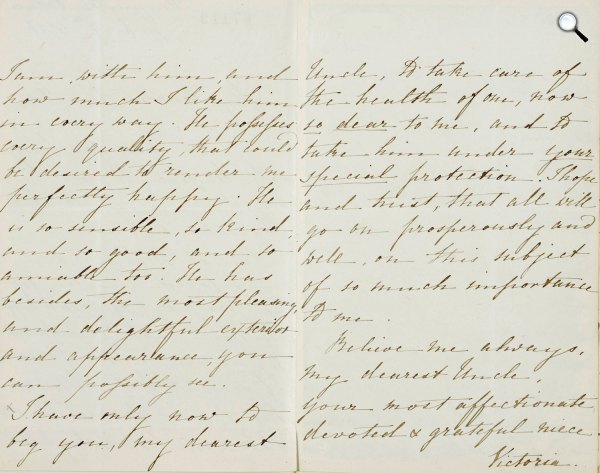 I am with him, and
how much I like him
in every way. He possesses
every quality that could
be desired to render me
perfectly happy. He
is so sensible, so kind,
and so good, and so
amiable too. He has
besides, the most pleasing
and delightful exterior
and appearance, you
can possibly see.
I have only now to
beg you, my dearest
Uncle, to take care of
the health of one, now
so dear to me, and to
take him under your
special protection. I hope
and trust, that all will
go on prosperously and
well, on this subject
of so much importance
to me.
Believe me always,
my dearest Uncle,
your most affectionate
devoted & grateful niece
Victoria.